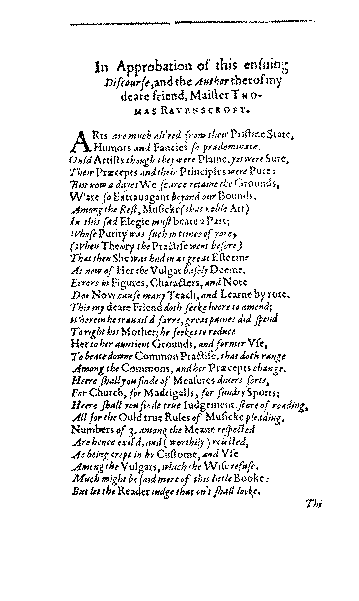 In Approbation of this ensuing
Discourse, and the Author therof my
deare friend, Maister THO-
MAS RAVENSCROFT.
ARts are much alt'red from their Pristine State,
Humors and Fancies so prædominate.
Ould Artists though they were Plaine, yet were Sure,
Their Præcepts and their Principles were Pure:
But now a dayes We scarce retaine the Grounds,
W'are so Extravagant beyond our Bounds.
Among the Rest, Musicke (that noble Art)
In this sad Elegie must beare a Part;
Whose Purity was such in times of yore,
(When Theory the Practise went before)
That then She was had in as great Esteeme
As now of Her the Vulgar basely Deeme.
Errors in Figures, Characters, and Note
Doe Now cause many Teach, and Learne by rote.
This my deare Friend doth seeke heere to amend;
Wherein he travail'd farre, great paines did spend
To right his Mother; he seekes to reduce
Her to her auncient Grounds, and former Vse,
To beate downe Common Practise, that doth range
Among the Commons, and her Præcepts change.
Heere shall you finde of Measures divers sorts,
For Church, for Madrigalls, for sundry Sports;
Heere shall you finde true Iudgement, store of reading,
All for the Ould true Rules of Musicke pleading.
Numbers of 3. among the Meane respected
Are hence exil'd, and (worthily)
As being crept in by Custome, and Vse
Among the Vulgars, which the Wise refuse.
Much might be said more of this little Booke:
But let the Reader iudge that on't shall looke.
Thi